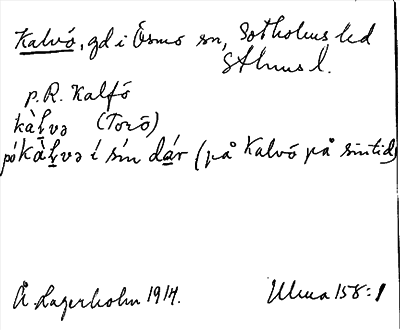 Kalvö, gd i Ösmo sn, Sotholms hd
Sthms l.
p.R. Kalfö
kàḷvə (Torö)
på kàḷvə i sin dár (på Kalvö på sin tid)
Å. Lagerholm 1914. Ulma 158:1